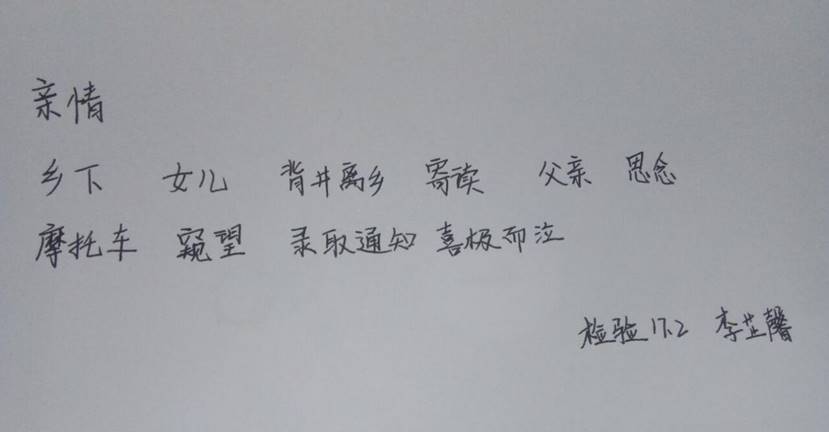 亲情
乡下 女儿 背井离乡 寄读 父亲 思念
摩托车 窥望 录取通知 喜极而泣
检验17.2 李芷馨